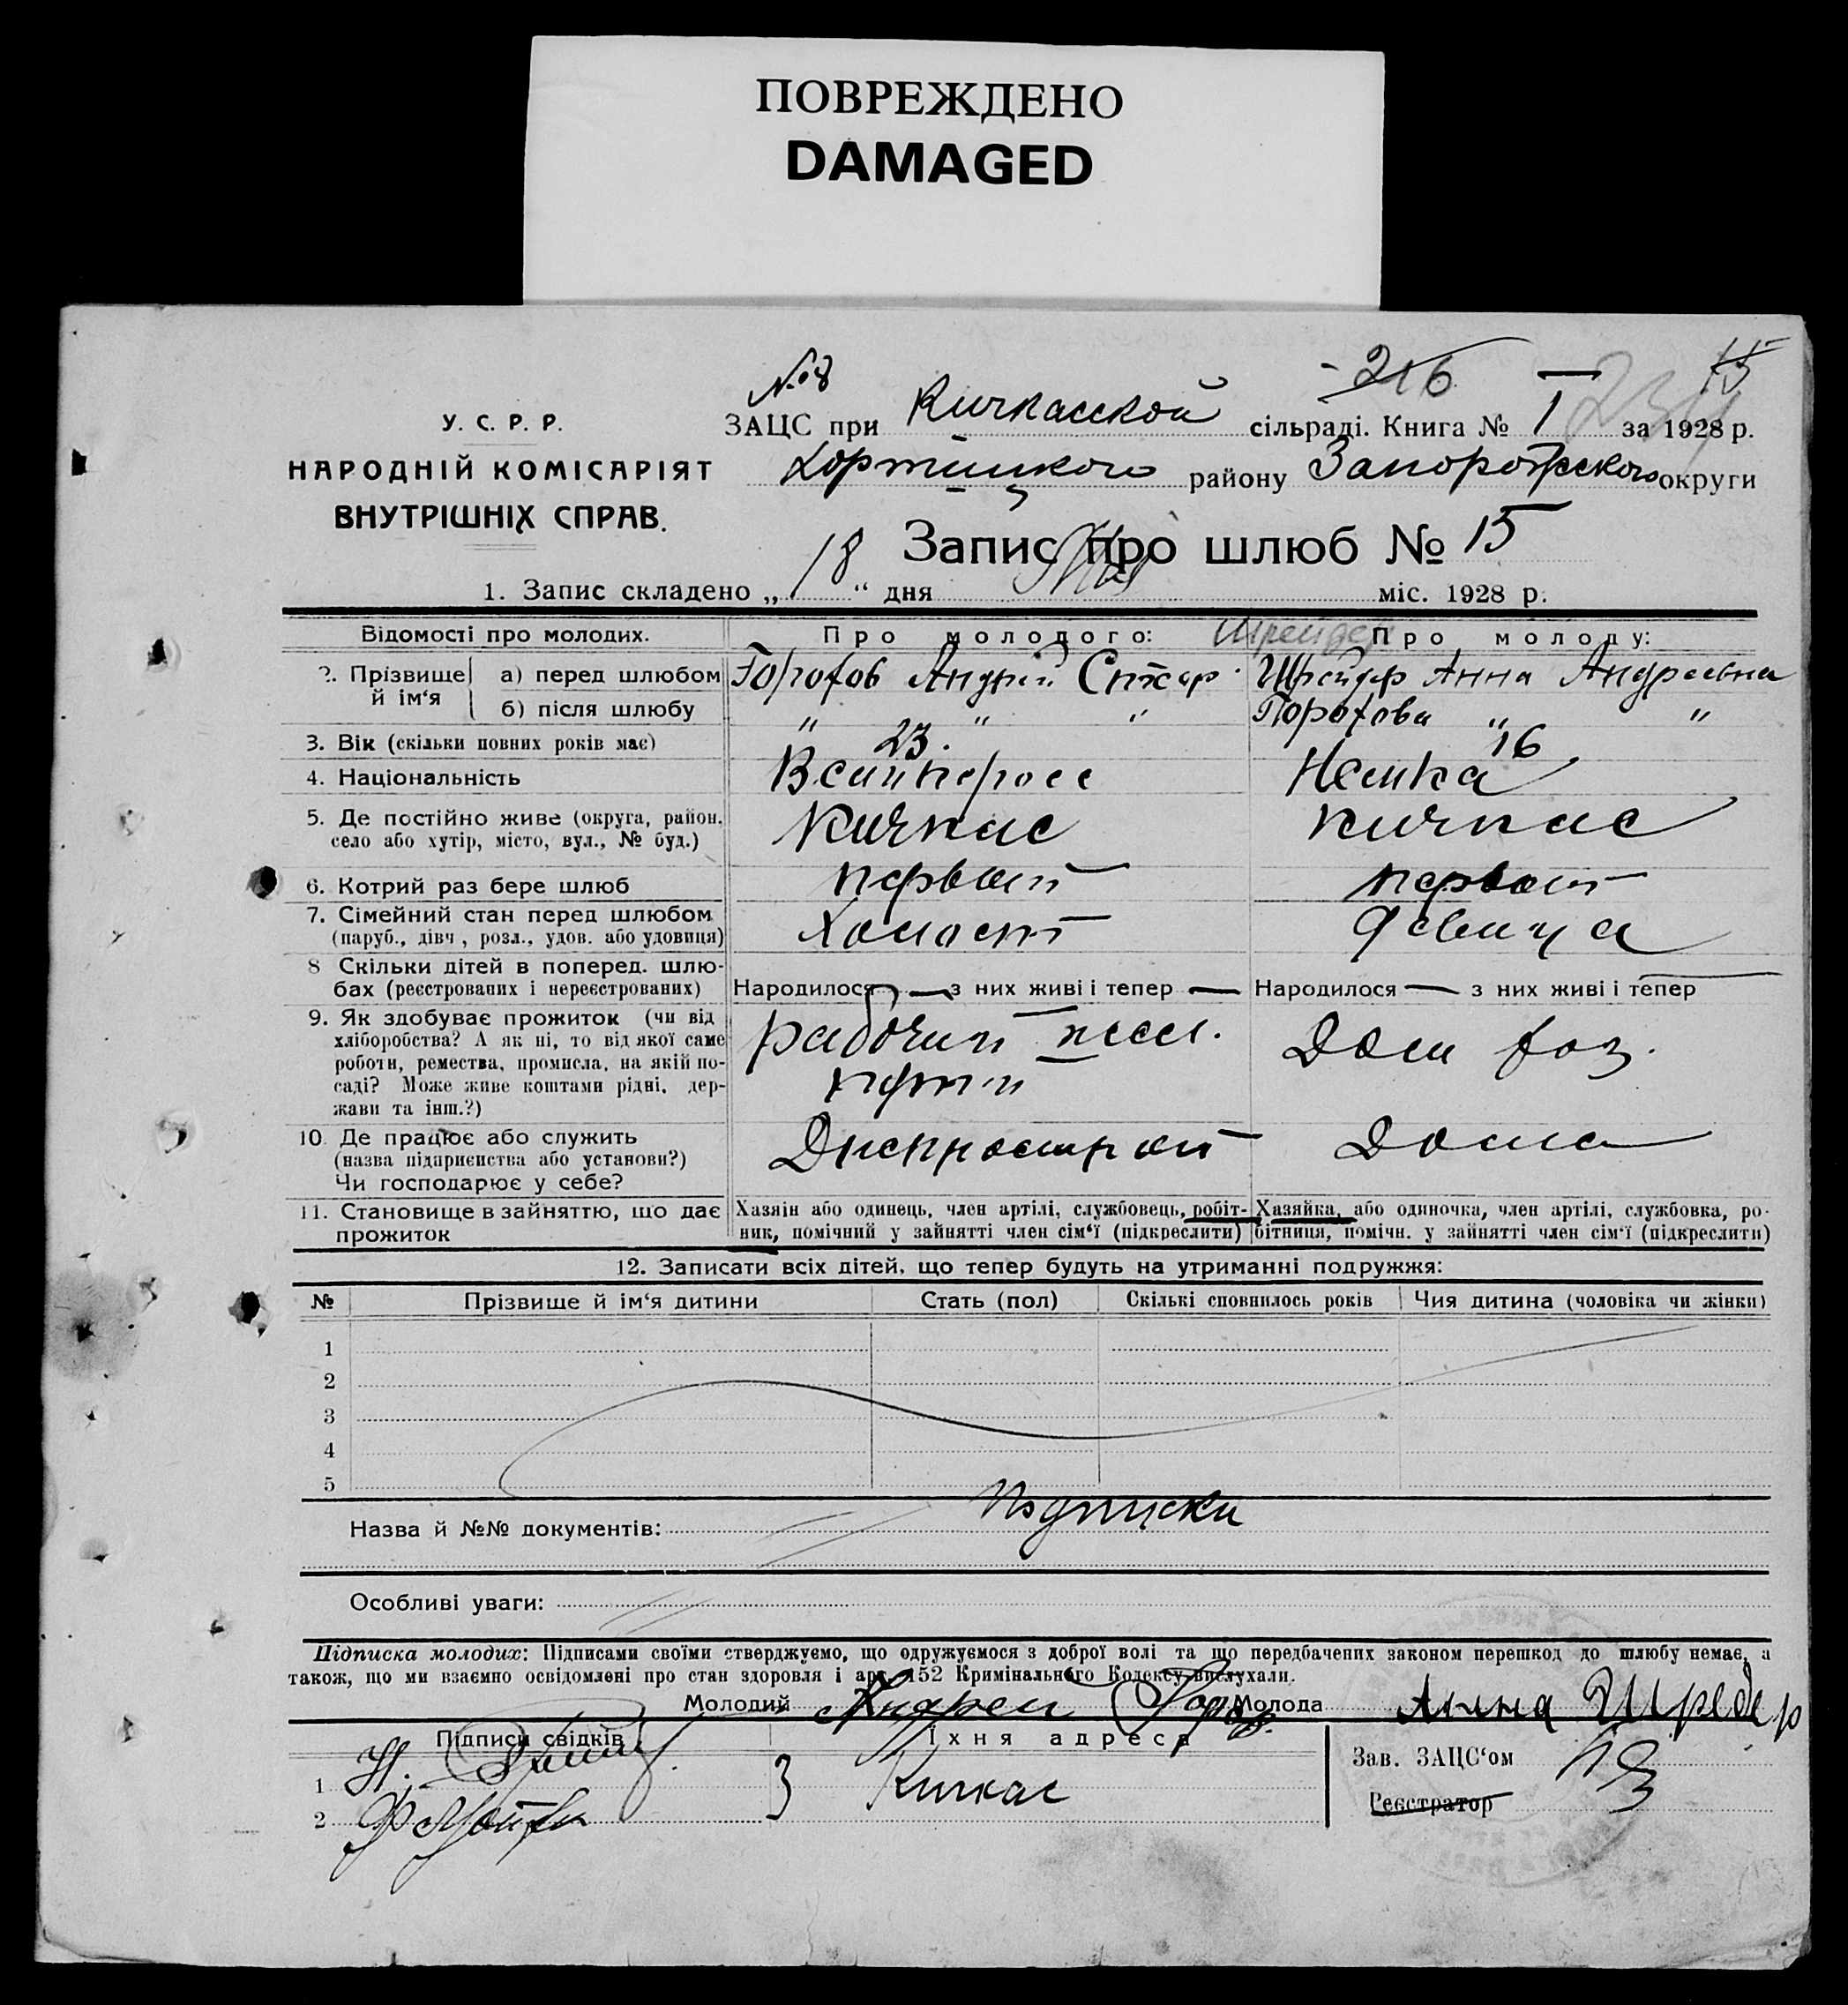 ПОВРЕЖДЕНО
DAMAGED
№ 8
216
15
У. С. Р. Р.
НАРОДНІЙ КОМІСАРІЯТ
ВНУТРІШНІХ СПРАВ.
ЗАЦС при Кичкасской сільраді. Книга № I за 1928 р.
Хортицкого району Запорожского округи
Запис про шлюб № 15
1. Запис складено „ 18 “ дня Мая міс. 1928 р.
Відомості про молодих. Про молодого: Про молоду:
2. Прізвище й ім‘я а) перед шлюбом Андрей Анна Андреевна
б) після шлюбу " " " " "
3. Вік (скільки повних років має) 23. 16
4. Національність Великоросс Немка
5. Де постійно живе (округа, район, село або хутір, місто, вул., № буд.) Кичкас Кичкас
6. Котрий раз бере шлюб первый первый
7. Сімейний стан перед шлюбом (паруб., дівч., розл., удов. або удовиця) Холост Девица
8 Скільки дітей в поперед. шлюбах (реєстрованих і нереєстрованих) Народилося — з них живі і тепер — Народилося — з них живі і тепер —
9. Як здобуває прожиток (чи від хліборобства? А як ні, то від якої саме роботи, ремества, промисла, на якій посаді? Може живе коштами рідні, держави та інш.?) рабочий Дом хоз.
10. Де працює або служить (назва підприємства або установи?) Чи господарює у себе? Днепрострой Дома
11. Становище в зайняттю, що дає прожиток
Хазяін або одинець, член артілі, службовець, робітник, помічний у зайнятті член сім‘ї (підкреслити)
Хазяйка, або одиночка, член артілі, службовка, робітниця, помічн. у зайнятті член сім‘ї (підкреслити)
12. Записати всіх дітей, що тепер будуть на утриманні подружжя:
№ Прізвище й ім‘я дитини Стать (пол) Скількі сповнилось років Чия дитина (чоловіка чи жінки)
1
2
3
4
5
Назва й №№ документів: Подписки
Особливі уваги:
Підписка молодих: Підписами своїми стверджуємо, що одружуємося з доброї волі та що передбачених законом перешкод до шлюбу немає, а
також, що ми взаємно освідомлені про стан здоровля і арт. 152 Кримінального Кодексу вислухали.
Молодий Андрей Молода Анна Шредер
Підписи свідків Їхня адреса
1
2
Кичкас
Зав. ЗАЦС‘ом
Реєстратор